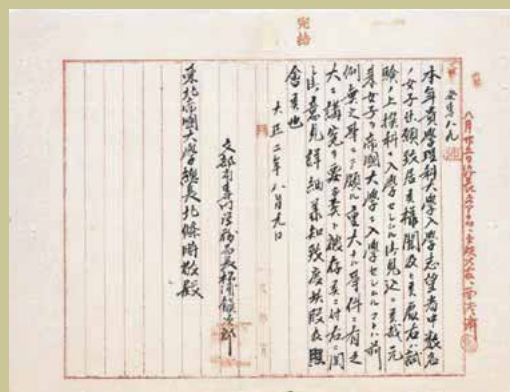 本年貴學理科大學入學志望者中数名
ノ女子出願致居候様聞及候處右ハ試
驗ノ上撰科ニ入學セシメラル御見込ニ候哉元
来女子ヲ帝國大學ニ入學セシムルコトハ前
例無之事ニテ頗ル重大ナル事件ニ有之
大ニ講究ヲ要シ候ト被存候ニ付右ニ関
シ御意見詳細承知致度此段及照
會候也
大正二年八月九日
文部省専門学務局長松浦鎮次郎
東北帝國大學總長北條時敬殿